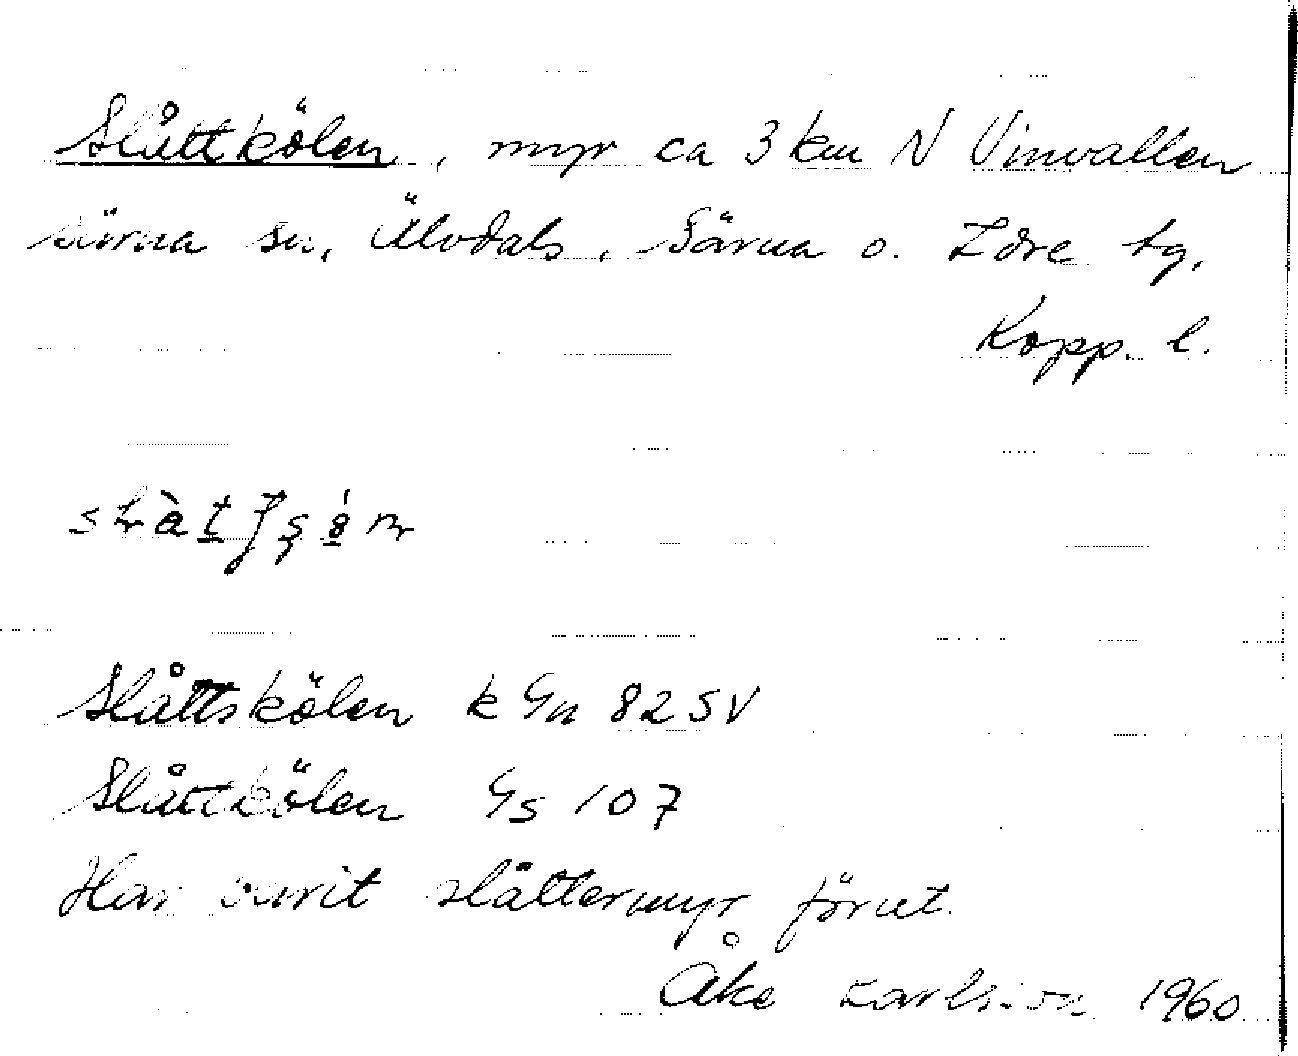 Slåttkölen, myr ca 3 km N Vinvallen
Särna sn, Älvdals, Särna o. Idre tg,
Kopp. l.
Slåttskölen k Gn 82 SV
Slåttkölen Gs 107
Har varit slåttermyr förut.
Åke Karlsson 1960